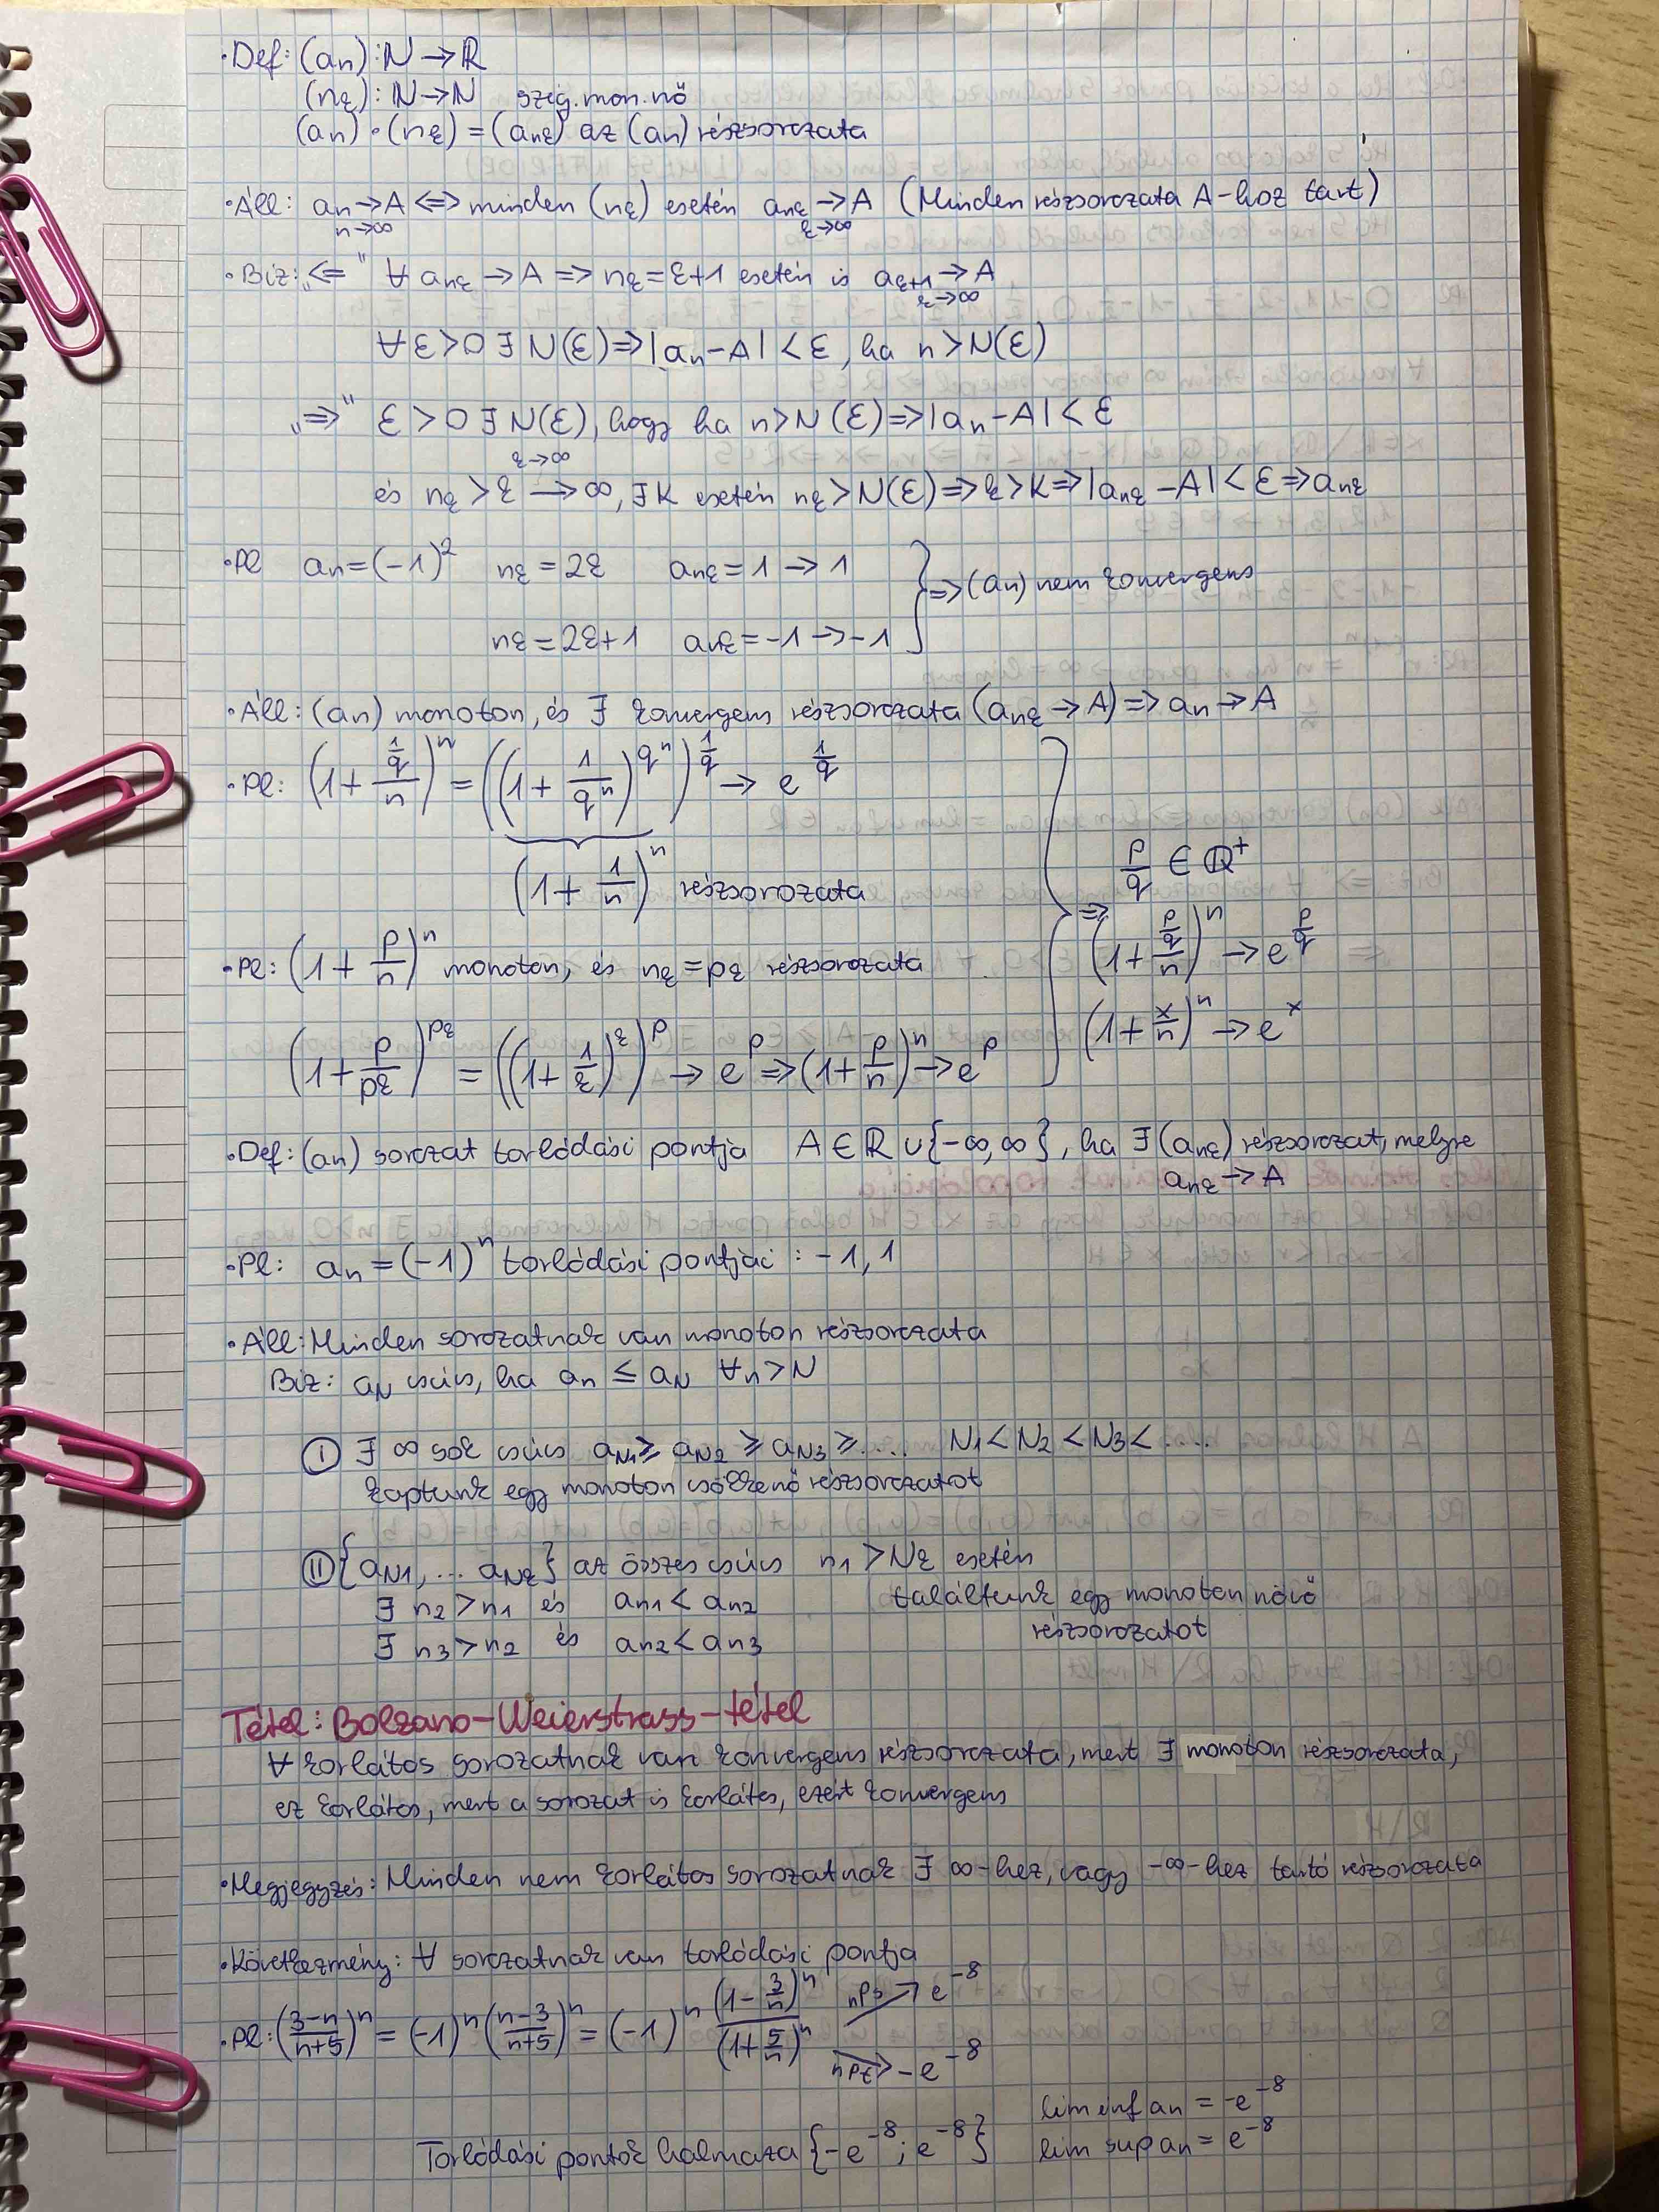 ·Def: (an): ℕ → ℝ
(nk): ℕ → ℕ szig. mon. nő
(an) ∘ (nk) = (ank) az (an) részsorozata
·Áll: an → A ⇔ minden (nk) esetén ank → A (Minden részsorozata A-hoz tart)
n→∞ k→∞
·Biz: „⇐" ∀ ank → A ⇒ nk = k+1 esetén is ak+1 → A
k→∞
∀ε>0 ∃ N(ε) ⇒ |an - A| < ε, ha n > N(ε)
„⇒" ε > 0 ∃ N(ε), hogy ha n > N(ε) ⇒ |an - A| < ε
k→∞
és nk > k → ∞, ∃ K esetén nk > N(ε) ⇒ k > K ⇒ |ank - A| < ε ⇒ ank
·Pl an = (-1)^2 nk = 2k ank = 1 → 1
} ⇒ (an) nem konvergens
nk = 2k+1 ank = -1 → -1
·Áll: (an) monoton, és ∃ konvergens részsorozata (ank → A) ⇒ an → A
·Pl: (1 + (1/q)/n)^n = ((1 + 1/qn)^qn)^(1/q) → e^(1/q)
(1 + 1/n)^n részsorozata
·Pl: (1 + p/n)^n monoton, és nk = pk részsorozata
(1 + p/pk)^pk = ((1 + 1/k)^k)^p → e^p ⇒ (1 + p/n)^n → e^p
} ⇒
p/q ∈ ℚ+
(1 + (p/q)/n)^n → e^(p/q)
(1 + x/n)^n → e^x
·Def: (an) sorozat torlódási pontja A ∈ ℝ ∪ {-∞, ∞}, ha ∃ (ank) részsorozat, melyre
ank → A
·Pl: an = (-1)^n torlódási pontjai: -1, 1
·Áll: Minden sorozatnak van monoton részsorozata
Biz: aN csúcs, ha an ≤ aN ∀n > N
Ⓘ ∃ ∞ sok csúcs aN1 ≥ aN2 ≥ aN3 ≥ .... N1 < N2 < N3 < ....
kaptunk egy monoton csökkenő részsorozatot
Ⓘⓘ {aN1, ... aNk} az összes csúcs n1 > Nk esetén
∃ n2 > n1 és an1 < an2 találtunk egy monoton növő
∃ n3 > n2 és an2 < an3 részsorozatot
Tétel: Bolzano-Weierstrass-tétel
∀ korlátos sorozatnak van konvergens részsorozata, mert ∃ monoton részsorozata,
ez korlátos, mert a sorozat is korlátos, ezért konvergens
·Megjegyzés: Minden nem korlátos sorozatnak ∃ ∞-hez, vagy -∞-hez tartó részsorozata
·Következmény: ∀ sorozatnak van torlódási pontja
·Pl: ((3-n)/(n+5))^n = (-1)^n ((n-3)/(n+5))^n = (-1)^n (1 - 3/n)^n / (1 + 5/n)^n
nPs → e^-8
nPt → -e^-8
lim inf an = -e^-8
Torlódási pontok halmaza {-e^-8; e^-8} lim sup an = e^-8